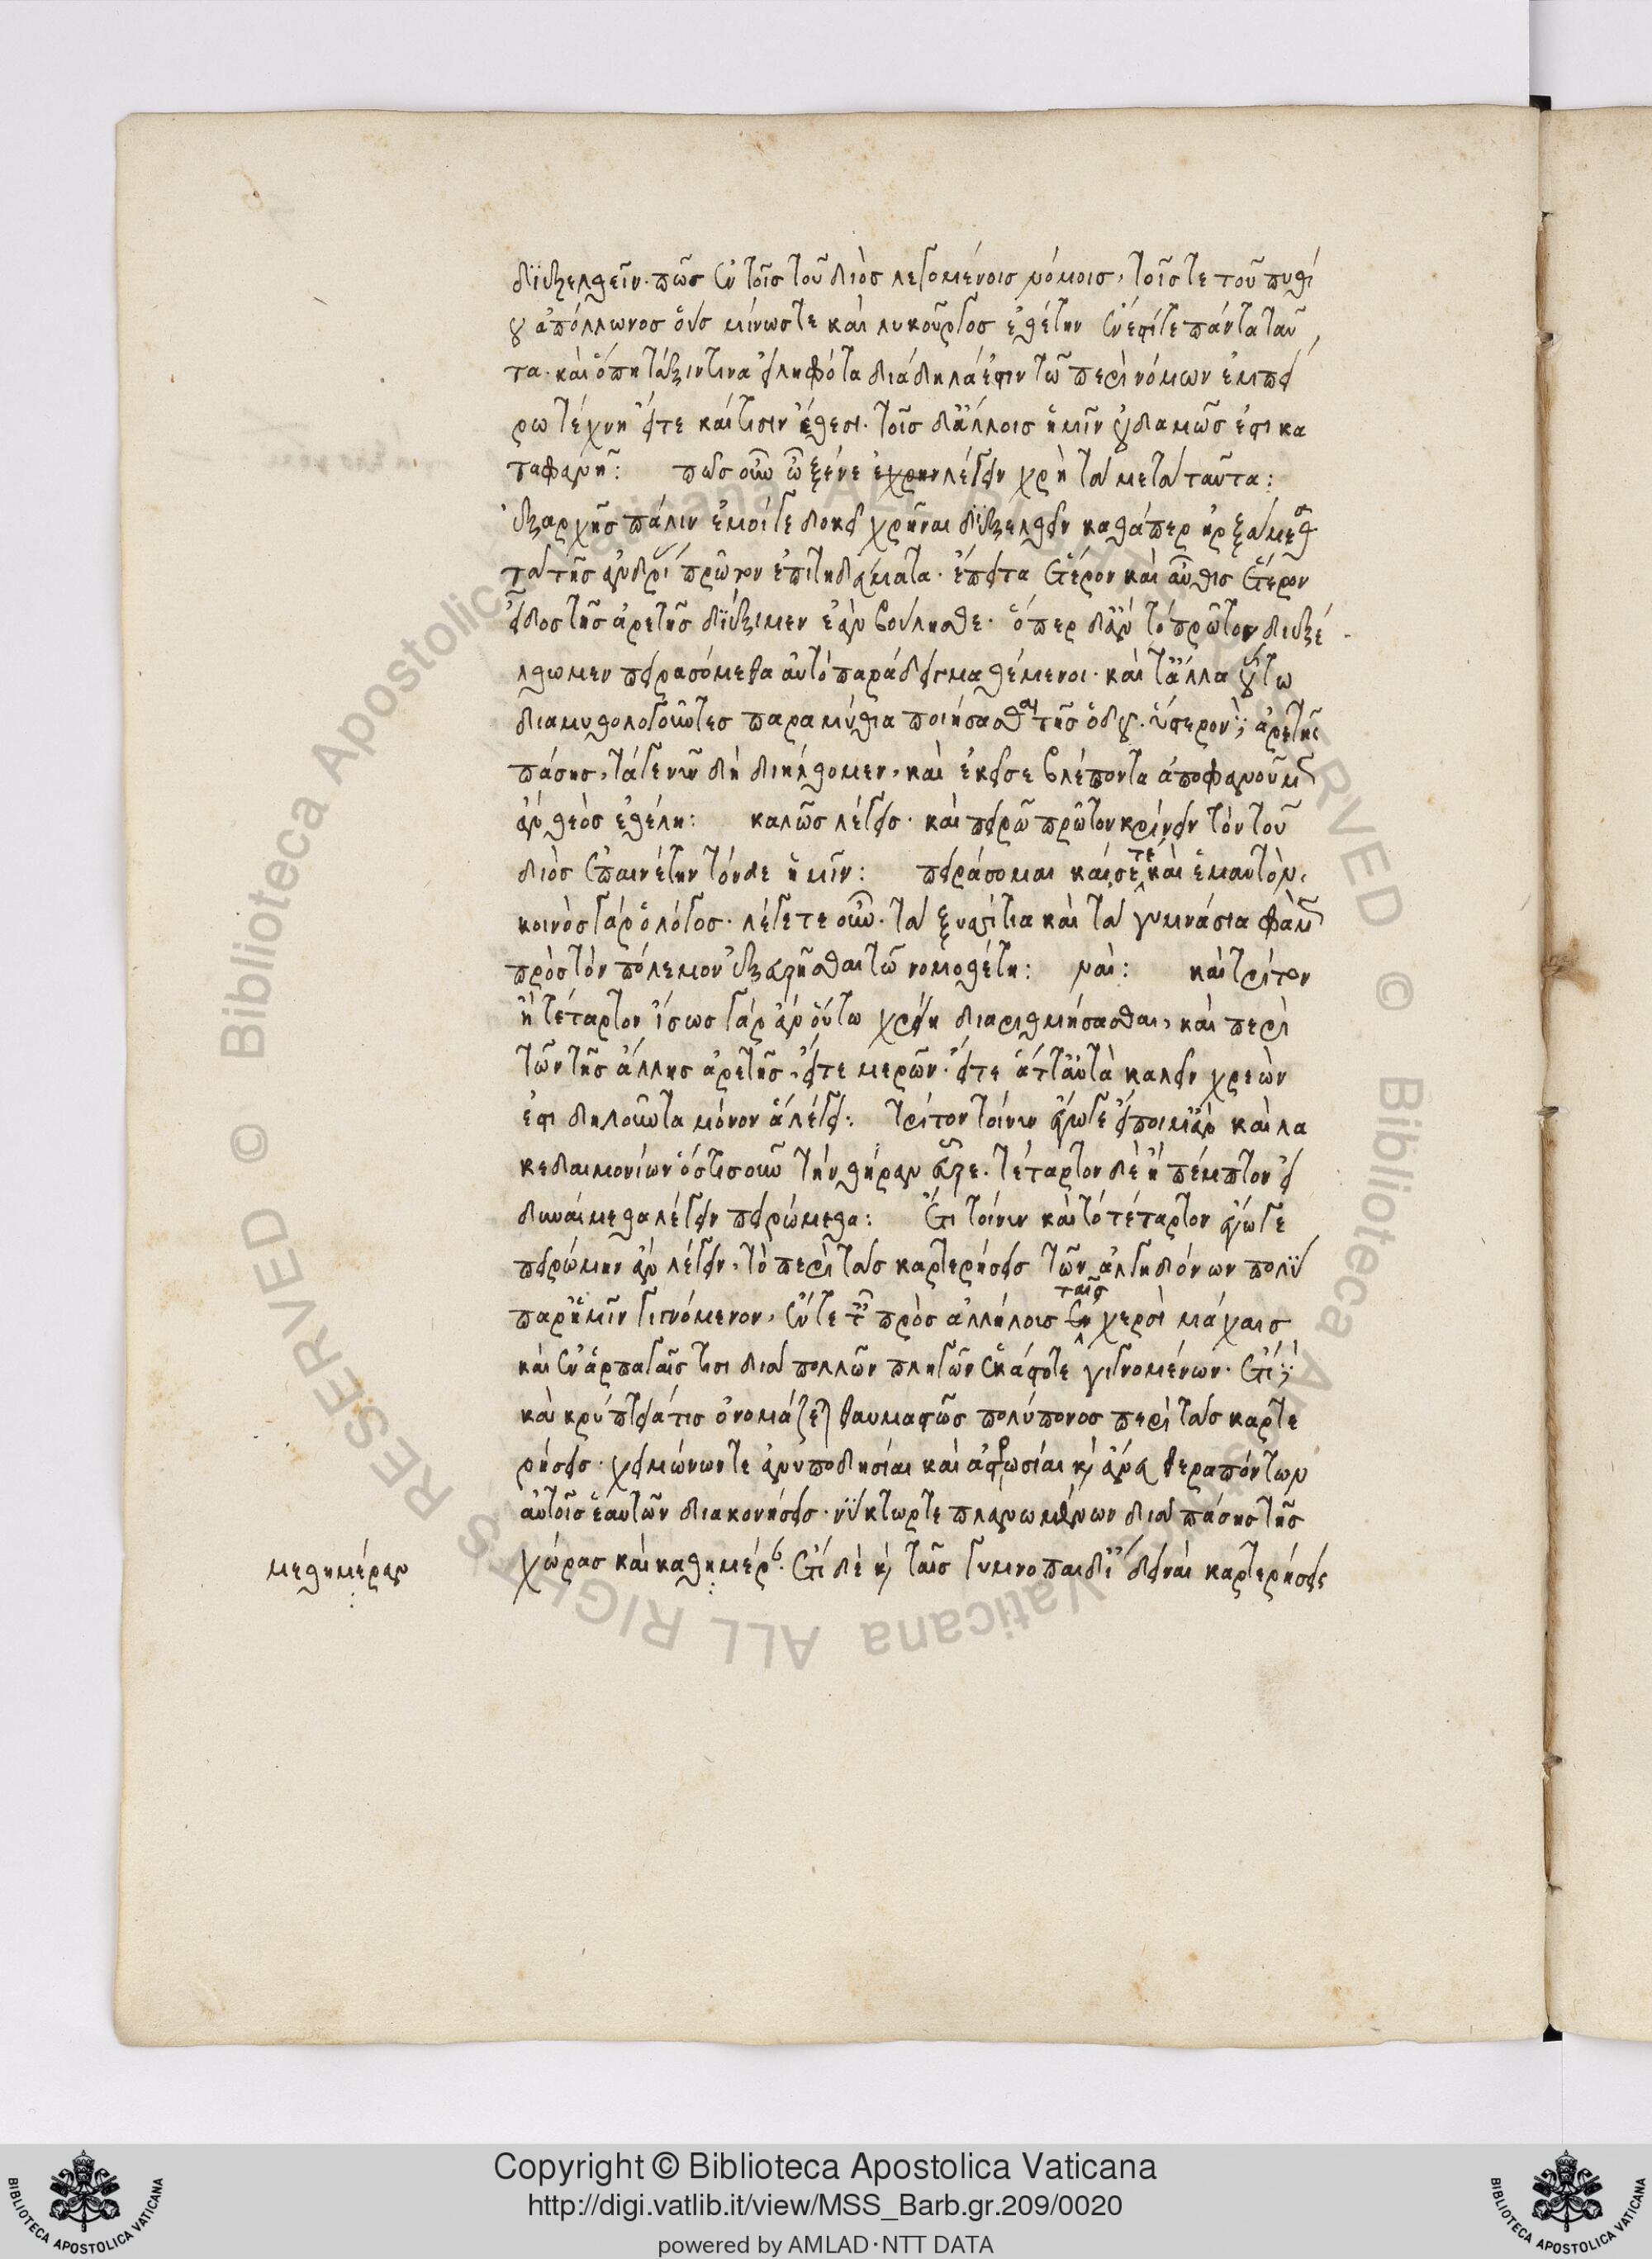 διεξελθεῖν. πῶσ ἐν τοῖσ τοῦ διὸσ λεγομένοισ νόμοισ, τοῖσ τε τοῦ πυθί
ου ἀπόλλωνοσ οὓσ μίνωστε καὶ λυκοῦργοσ ἐθέτην ἔνεστίτε πάντα ταῦ
τα. καὶ ὅπη τάξιντινα εἰληφότα διάδηλά ἐστιν τῶ περὶ νόμων ἐμπεί
ρω τέχνη εἴτε καί τισιν ἔθεσι. τοῖσ δ' ἄλλοισ ἡμῖν οὐδαμῶσ ἐστι κα
ταφανῆ: πῶσ οὖν ὦ ξένε ἐχρην λέγειν χρὴ τὰ μετὰ ταῦτα:
ἐξαρχῆσ πάλιν ἐμοίγε δοκεῖ χρῆναι διεξελθεῖν καθάπερ ἠρξάμεθα
τὰ τῆσ ἀνδρί πρῶτον ἐπιτηδεύματα. ἔπειτα ἕτερον καὶ αὖθισ ἕτερον
εἶδοσ τῆσ ἀρετῆσ διέξιμεν ἐὰν βούλησθε. ὅπερ δ' ἂν τὸ πρῶτον διεξέ
λθωμεν πειρασόμεθα αὐτὸ παράδειγμα θέμενοι. καὶ τἄλλα οὕτω
διαμυθολογοῦντεσ παραμύθια ποιήσασθαι τῆσ ὁδοῦ. ὕστερον δὲ ἀρετῆσ
πάσησ, τάγε νῦν δὴ διηλθομεν, καὶ ἐκεῖσε βλέποντα ἀποφανοῦμεν
ἂν θεὸσ ἐθέλη: καλῶσ λέγεισ. καὶ πειρῶ πρῶτον κρίνειν τὸν τοῦ
διὸσ ἐπαινέτην τόνδε ἡμῖν: πειράσομαι καί σέ τε καὶ ἐμαυτὸν.
κοινὸσ γάρ ὁ λόγοσ. λέγετε οὖν. τὰ ξυσσίτια καὶ τὰ γυμνάσια φαμὲν
πρὸσ τὸν πόλεμον ἐξευρῆσθαι τῶ νομοθέτη: ναὶ: καὶ τρίτον
ἢ τέταρτον ἴσωσ γάρ ἂν οὕτω χρείη διαριθμήσασθαι, καὶ περὶ
τῶν τῆσ ἄλλησ ἀρετῆσ, εἴτε μερῶν. εἴτε ἅττ' αὐτὰ καλεῖν χρεὼν
ἐστι δηλοῦντα μόνον ἃ λέγει: τρίτον τοίνυν ἔγωγε εἴποιμ' ἂν καὶ λα
κεδαιμονίων ὁστισοῦν τὴν θήραν εὗρε. τέταρτον δὲ ἢ πέμπτον εἰ
δυναίμεθα λέγειν πειρώμεθα: ἔτι τοίνυν καὶ τὸ τέταρτον ἔγωγε
πειρώμην ἂν λέγειν, τὸ περὶ τὰσ καρτερήσεισ τῶν ἀλγηδόνων πολὺ
παρ' ἡμῖν γιγνόμενον, ἔν τε τ πρὸσ ἀλλήλοισ ταῖσ χερσὶ μάχαισ
καὶ ἐν ἁρπαγαῖσ τισι διὰ πολλῶν πληγῶν ἑκάστοτε γιγνομένων. ἔτι δὲ
καὶ κρύπτειά τισ ὀνομάζεται θαυμαστῶσ πολύπονοσ περὶ τὰσ καρτε
ρήσεισ. χειμώνωντε ἀνυποδησίαι καὶ ἀστρωσίαι καὶ ἄνευ θεραπόντων
αὐτοῖσ ἑαυτῶν διακονήσεισ. νύκτωρτε πλανωμένων διὰ πάσησ τῆσ
χώρασ καὶ καθημέραν. ἔτι δὲ καὶ ταῖσ γυμνοπαιδίαισ δειναὶ καρτερήσεισ
μεθημέραν
Copyright © Biblioteca Apostolica Vaticana
http://digi.vatlib.it/view/MSS_Barb.gr.209/0020
powered by AMLAD·NTT DATA
BIBLIOTECA APOSTOLICA VATICANA
BIBLIOTECA APOSTOLICA VATICANA
© Biblioteca Apostolica Vaticana ALL RIGHTS RESERVED © Biblioteca Apostolica Vaticana ALL RIGHTS RESERVED